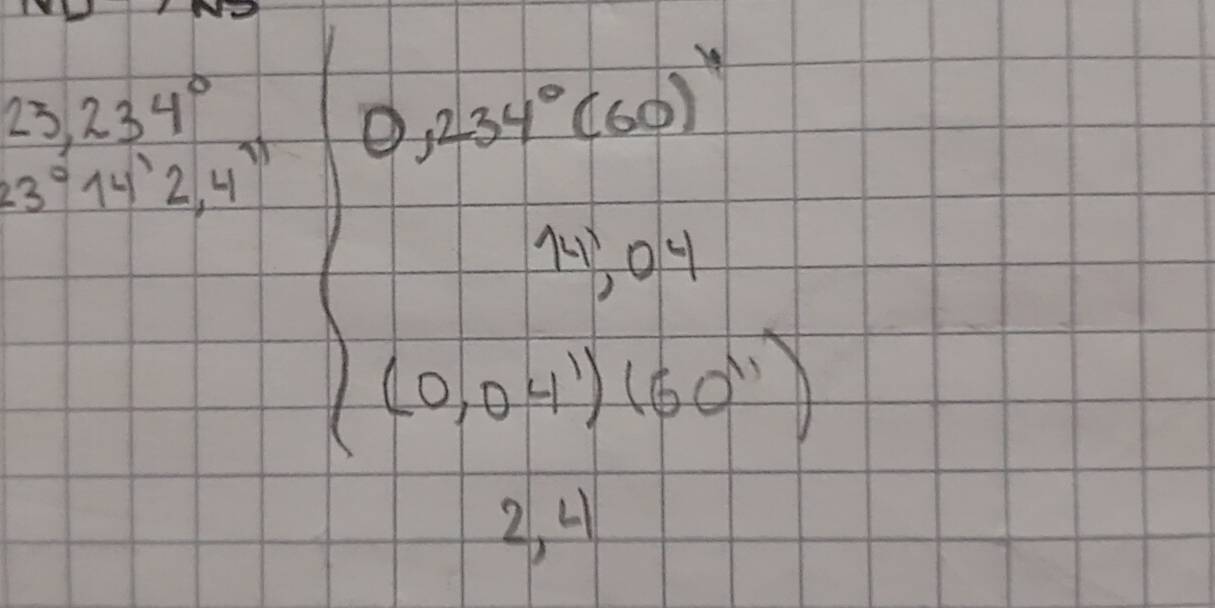 23,234°
23°14'2,4"
0,234°(60)"
14',04
(0,04')(60")
2,4